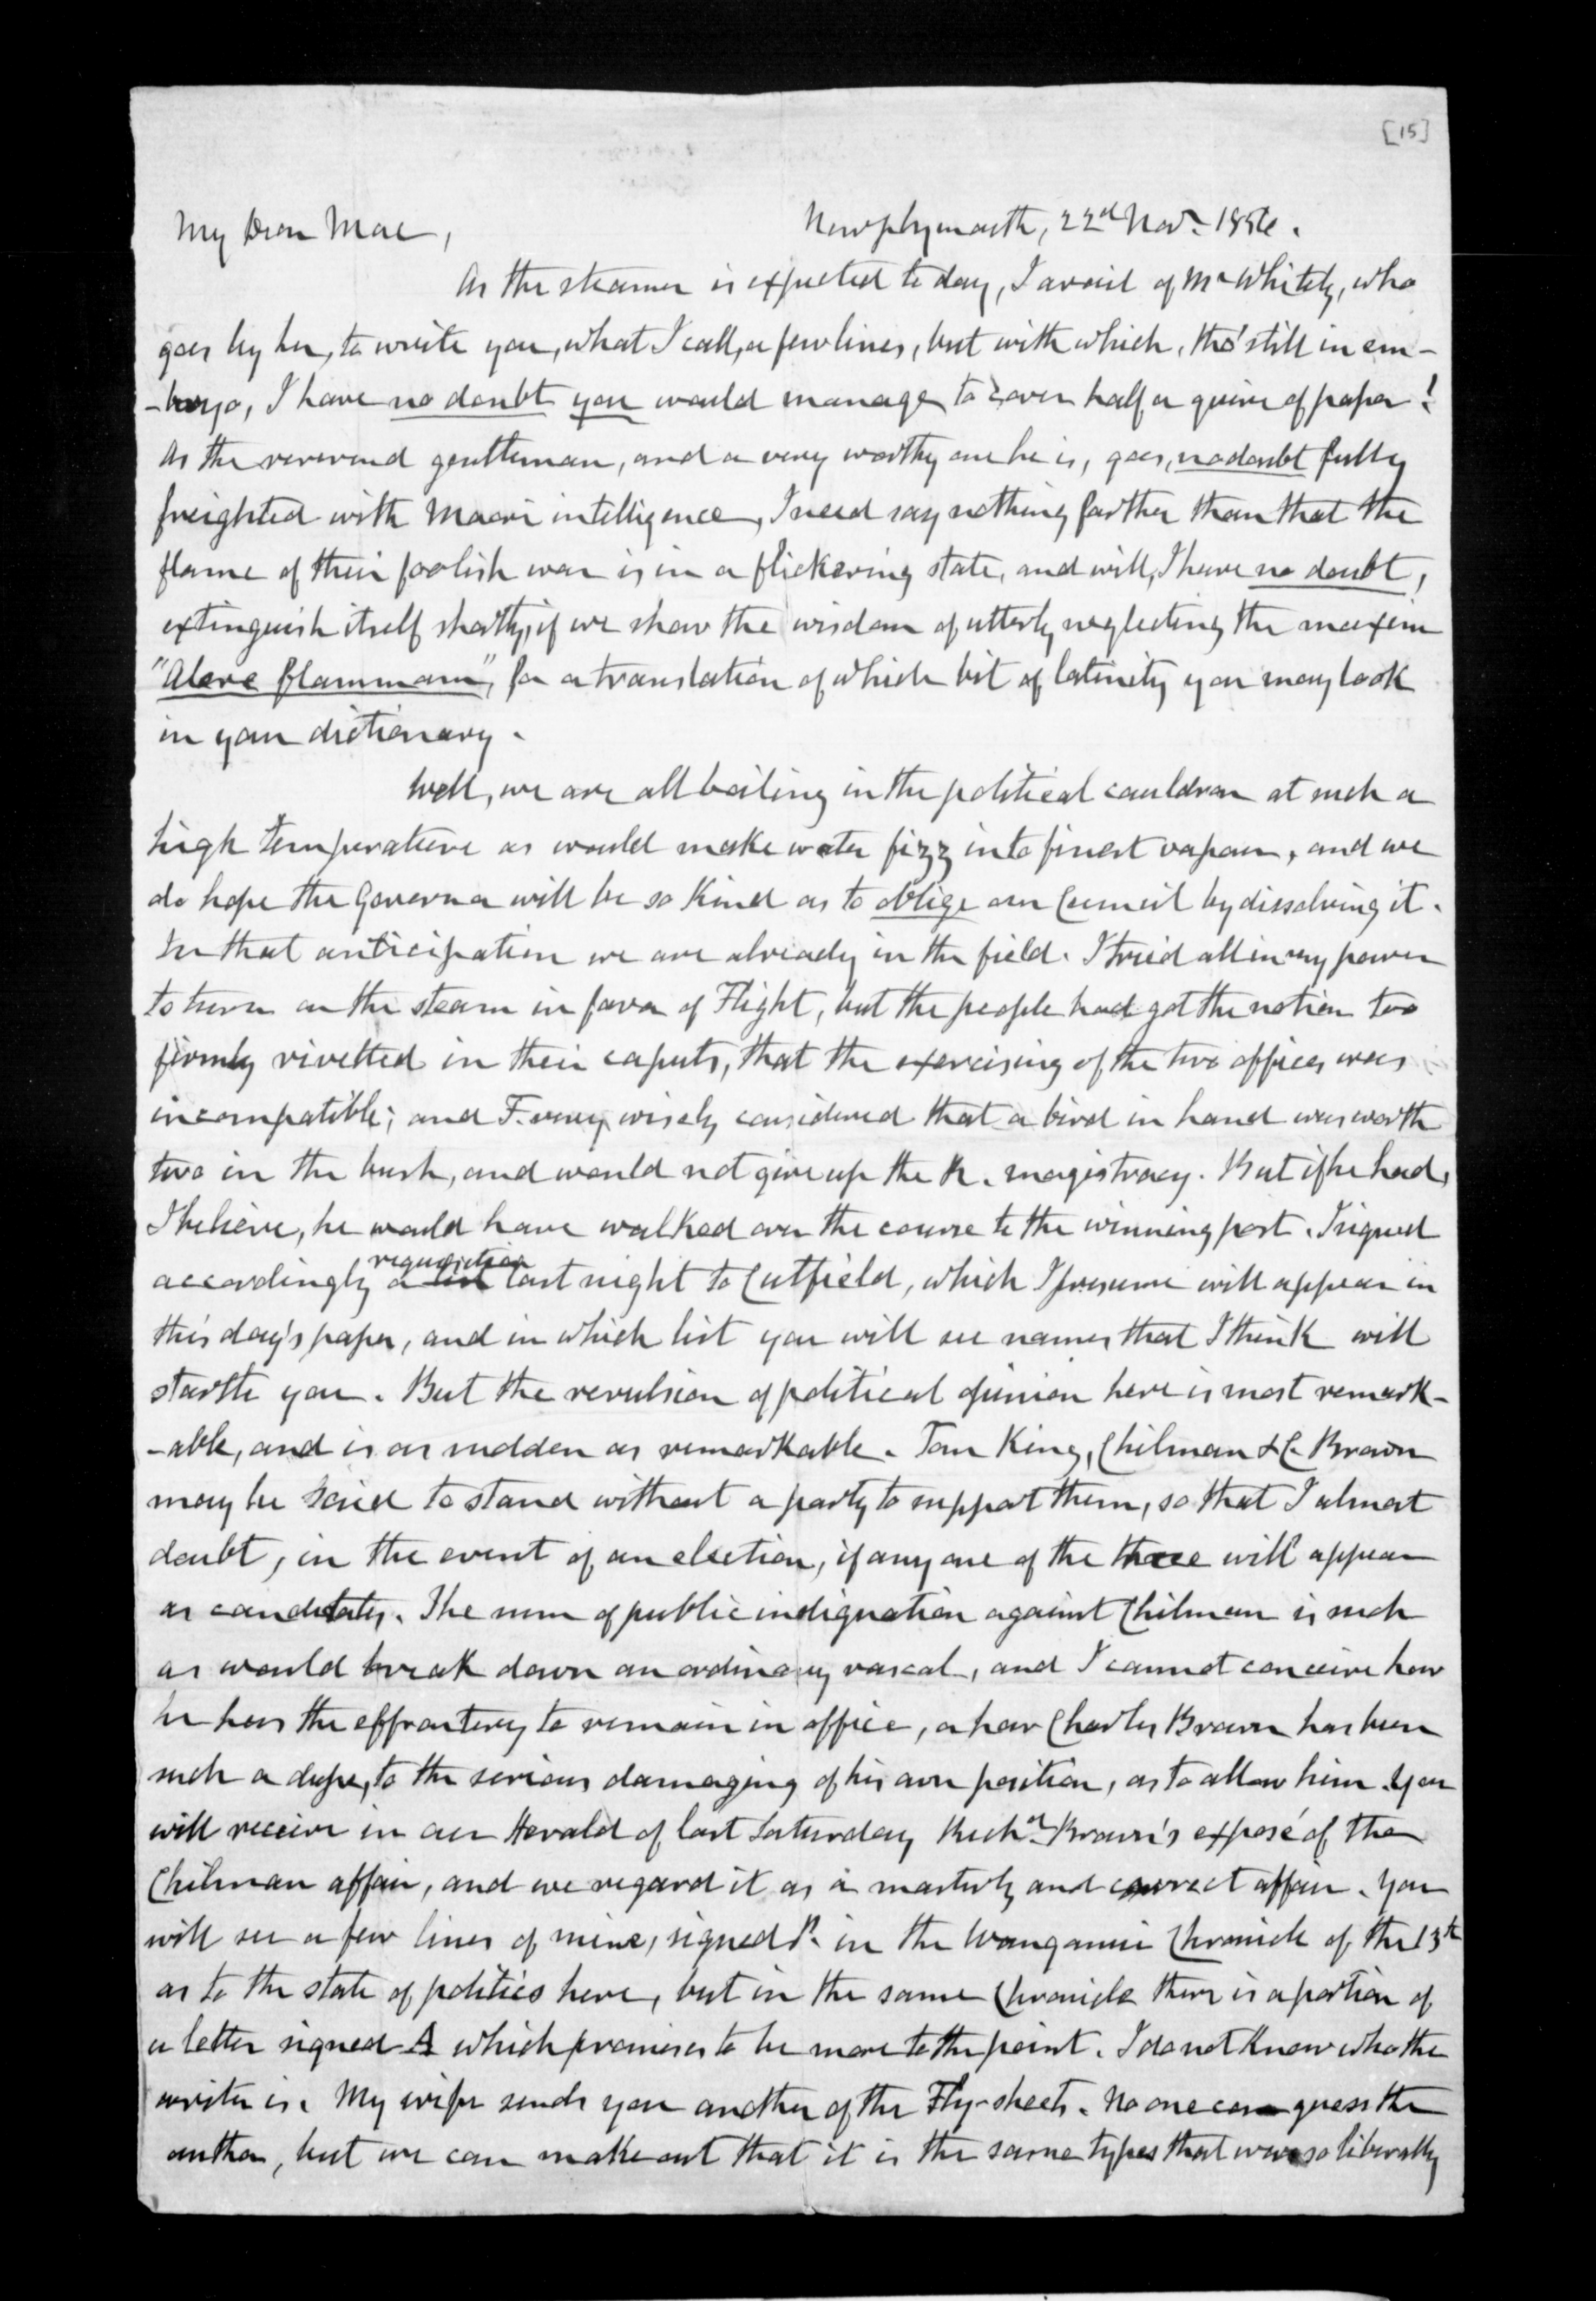 [15]
My Dear Mac,
Newplymouth, 22nd Novr. 1856.
As the steamer is expected to day, I avail of Mr Whitely, who
goes by her, to write you, what I call, a few lines, but with which, tho' still in em-
-bryo, I have no doubt you would manage to cover half a quire of paper!
As the reverend gentleman, and a very worthy one he is, goes, no doubt fully
freighted with Maori intelligence, I need say nothing farther than that the
flame of their foolish war is in a flickering state, and will, I have no doubt,
extinguish itself shortly, if we show the wisdom of utterly neglecting the maxim
"Alere flammam", for a translation of which bit of latinity you may look
in your dictionary.
Well, we are all boiling in the political cauldron at such a
high temperature as would make water fizz into finest vapour, and we
do hope the Governor will be so kind as to oblige our Council by dissolving it.
In that anticipation we are already in the field. I tried all in my power
to turn on the steam in favor of Flight, but the people had got the notion too
firmly rivetted in their caputs, that the exercising of the two offices was
incompatible; and F. very wisely considered that a bird in hand was worth
two in the bush, and would not give up the R. magistracy. But if he had,
I believe, he would have walked over the course to the winning post. I signed
accordingly a requisition last night to Cutfield, which I presume will appear in
this day's paper, and in which list you will see names that I think will
startle you. But the revulsion of political opinion here is most remark-
-able, and is as sudden as remarkable. Tom King, Chilman & C. Brown
may be said to stand without a party to support them, so that I almost
doubt, in the event of an election, if any one of the three will appear
as candidates. The sum of public indignation against Chilman is such
as would break down an ordinary rascal, and I cannot conceive how
he has the effrontery to remain in office, or how Charles Brown has been
such a dupe, to the serious damaging of his own position, as to allow him. You
will receive in our Herald of last Saturday Richd. Brown's exposé of the
Chilman affair, and we regard it as a masterly and correct affair. You
will see a few lines of mine, signed P. in the Wanganui Chronicle of the 13th
as to the state of politics here, but in the same Chronicle there is a portion of
a letter signed A which promises to be more to the point. I do not know who the
writer is. My wife sends you another of the Fly-sheets. No one can guess the
author, but we can make out that it is the same types that were so liberally